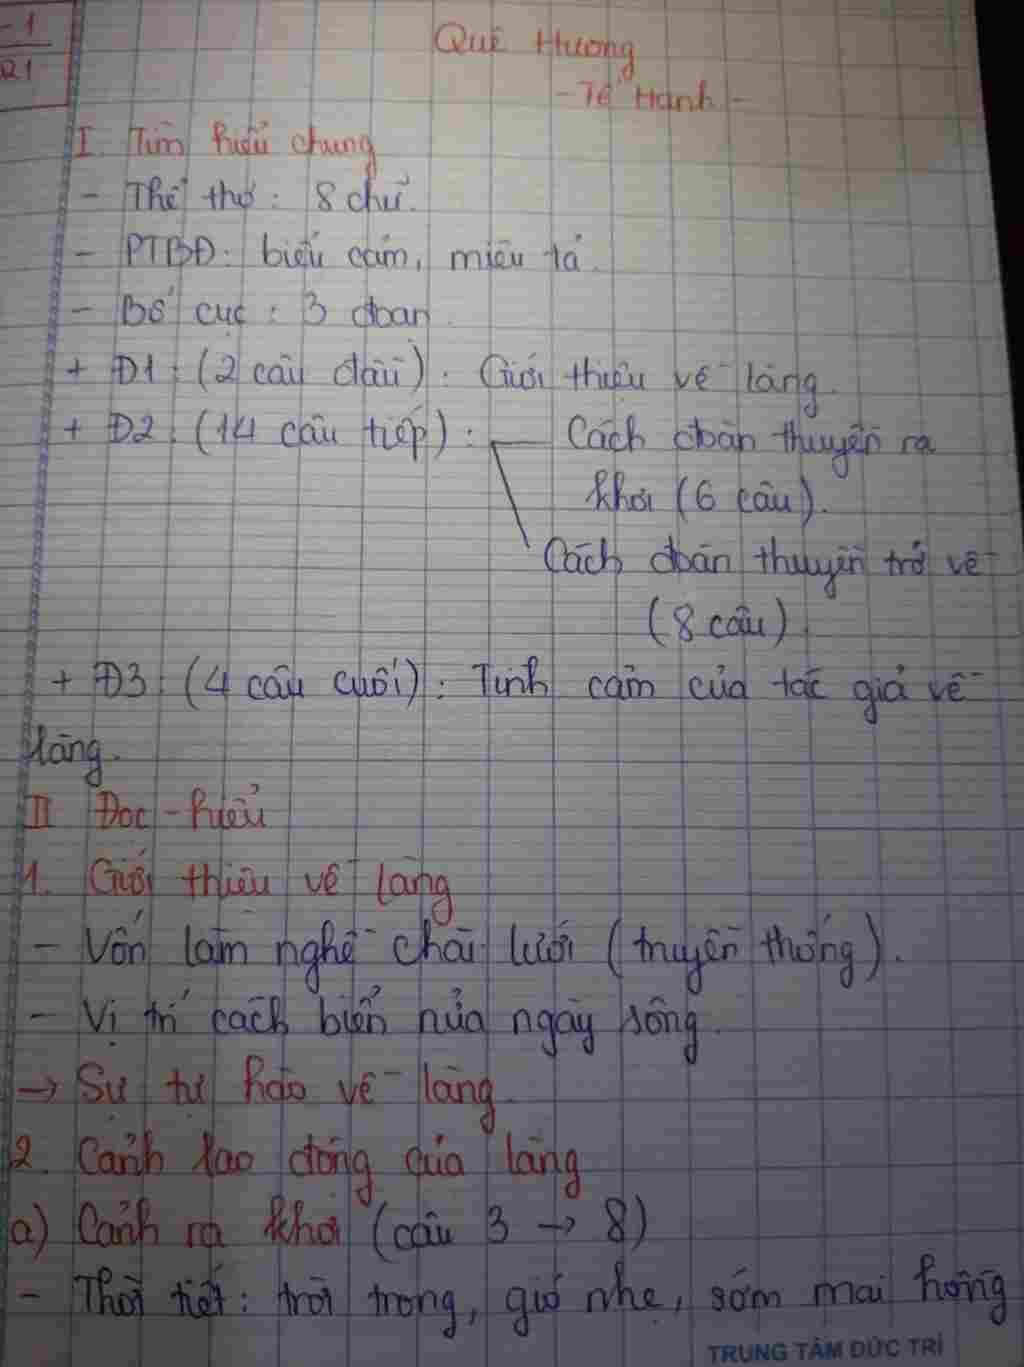 -1
21
Quê Hương
- Tế Hanh -
I. Tìm hiểu chung
- Thể thơ: 8 chữ.
- PTBĐ: biểu cảm, miêu tả.
- Bố cục: 3 đoạn.
+ Đ1: (2 câu đầu): Giới thiệu về làng.
+ Đ2: (14 câu tiếp): Cách đoàn thuyền ra
khơi (6 câu).
Cách đoàn thuyền trở về
(8 câu)
+ Đ3: (4 câu cuối): Tình cảm của tác giả về
làng.
II Đọc - hiểu
1. Giới thiệu về làng
- Vốn làm nghề chài lưới (truyền thống).
- Vị trí cách biển nửa ngày sông.
→ Sự tự hào về làng.
2. Cảnh lao động của làng
a) Cảnh ra khơi (câu 3 → 8)
- Thời tiết: trời trong, gió nhẹ, sớm mai hồng
TRUNG TÂM ĐỨC TRÍ